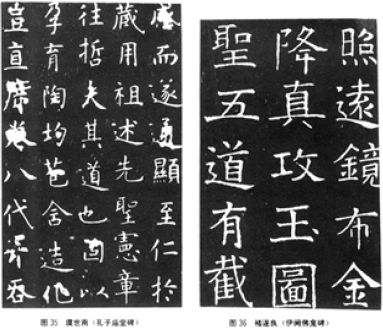 感而遂通顯至仁於
藏用祖述先聖憲章
往哲夫其道也固以
孕育陶均苞含造化
豈直席卷八代并吞
图 35 虞世南（孔子庙堂碑）
照遠鏡布金
降真攻玉圖
聖五道有截
图 36 褚遂良（伊阙佛龛碑）